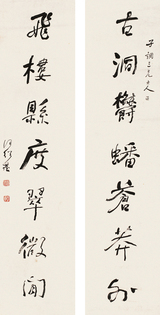 古洞郁蟠蒼莽外
子調三兄大人正
飛樓縣度翠微間
何紹基